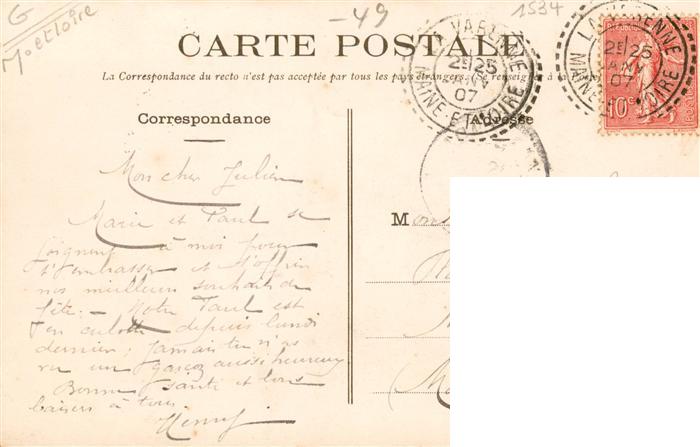 G
M et Loire
-49
1534
CARTE POSTALE
La Correspondance du recto n'est pas acceptée par tous les pays étrangers. (Se renseigner à la
Correspondance
Adresse
LA VARENNE
2E 25
JANV
07
MAINE-ET-LOIRE
LA VARENNE
2E 25
JANV
07
MAINE-ET-LOIRE
10c
Mon cher Julien
Marie et Paul se
joignent à moi pour
t'embrasser et t'offrir
nos meilleurs souhaits de
fête. - Notre Paul est
en culotte depuis lundi
dernier; jamais tu n'as
vu un garçon aussi heureux
Bonne santé et bons
baisers à tous.
Henry